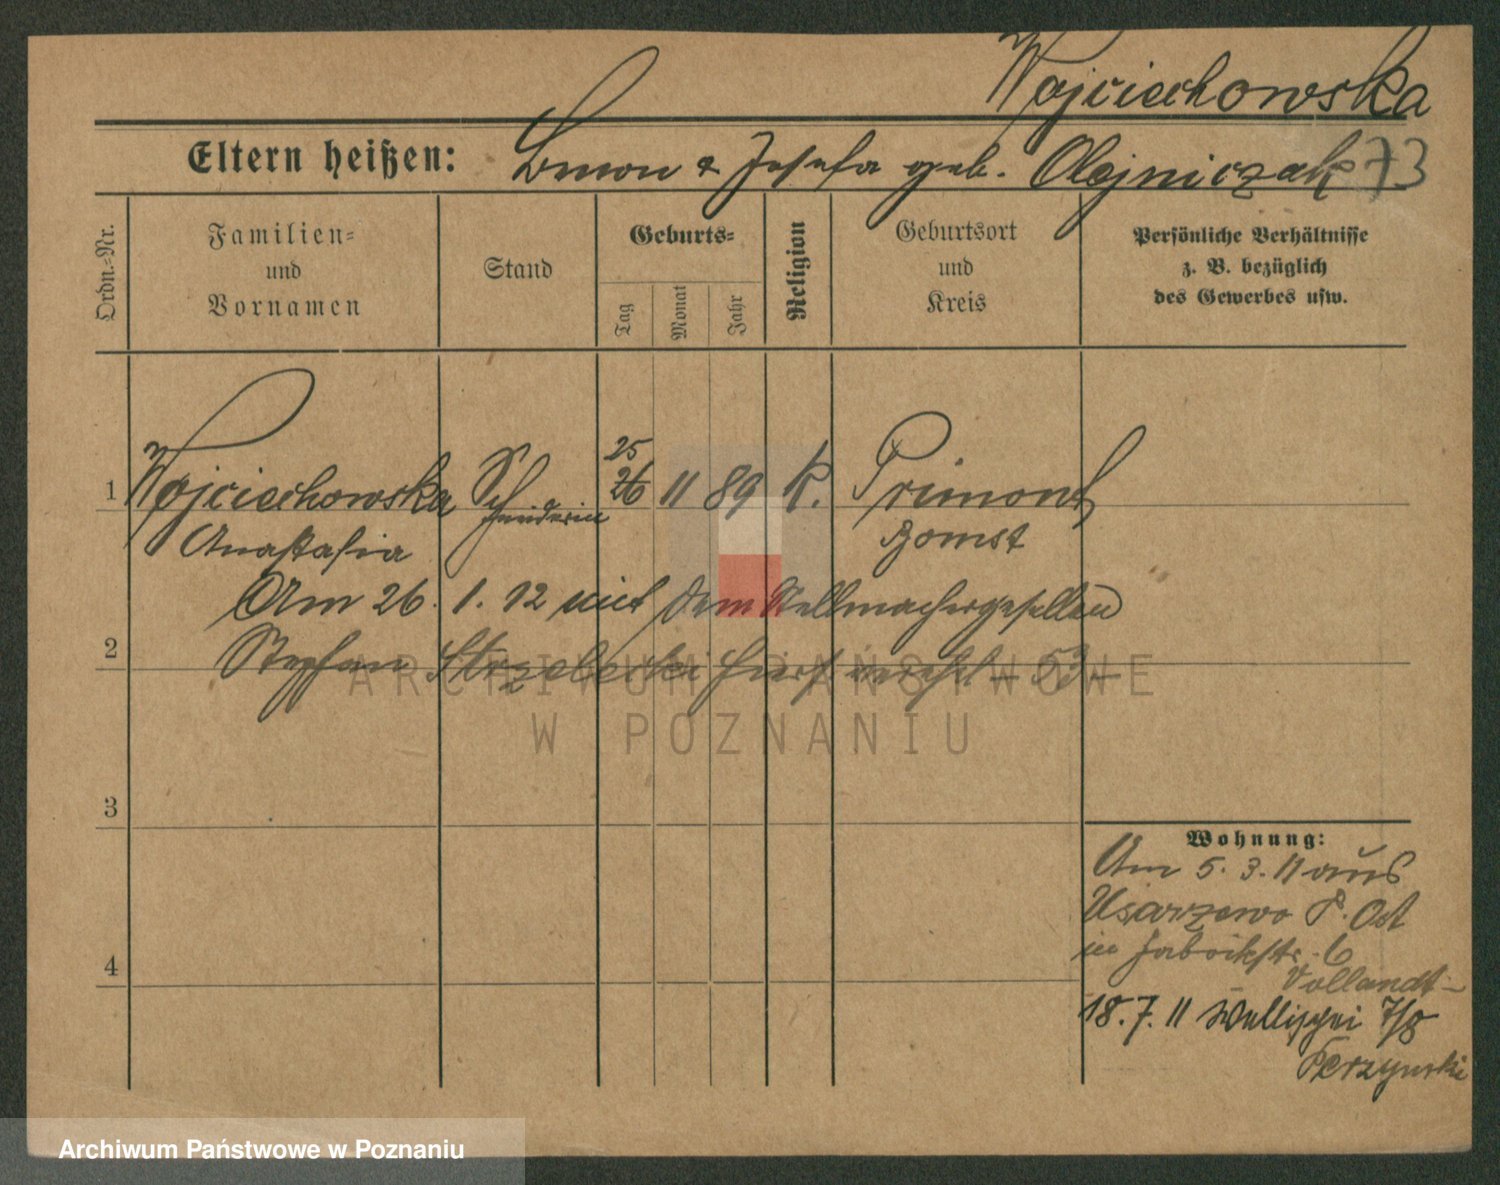 Wojciechowska
Eltern heißen: Simon & Josefa geb. Olejniczak 73
Ordn.-Nr.
Familien-
und
Vornamen
Stand
Geburts-
Tag
Monat
Jahr
Religion
Geburtsort
und
Kreis
Persönliche Verhältnisse
z. B. bezüglich
des Gewerbes usw.
25
1 Wojciechowska Schneiderin 26 11 89 k. Priment
Anastasia Bomst
Am 26. 1. 12 mit dem Stellmachergesellen
2 Stephan Strzelecki hier verehl. - 53 -
ARCHIWUM PAŃSTWOWE
W POZNANIU
3
Wohnung:
Am 5. 3. 11 aus
Usarzewo P. Ost
in Fabrikstr. 6
4
Vollandt -
18. 7. 11 Wallischei 7/8
Perzynski
Archiwum Państwowe w Poznaniu